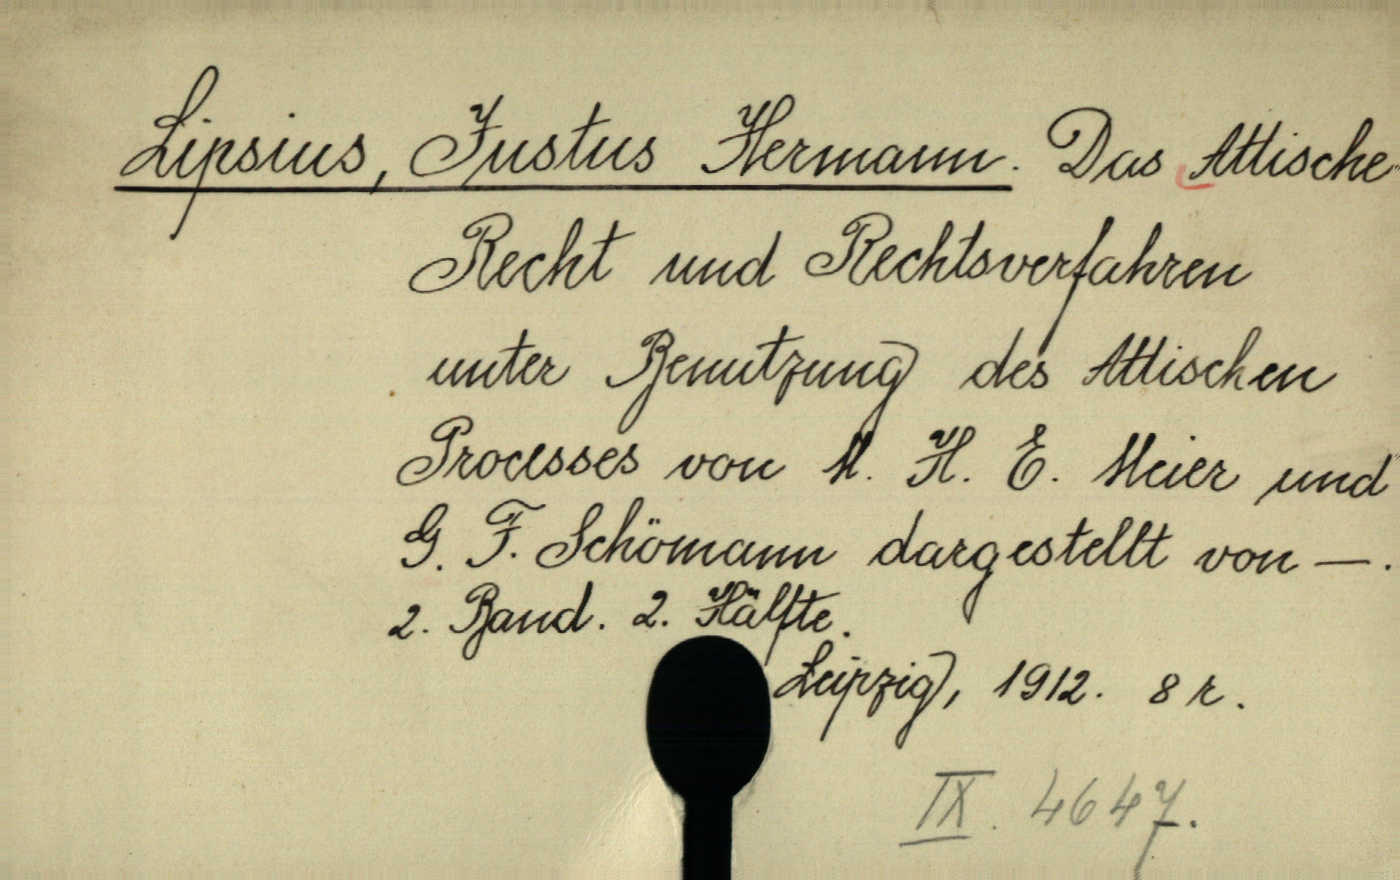 Lipsius, Justus Hermann. Das Attische
Recht und Rechtsverfahren
unter Benutzung des Attischen
Processes von M. H. E. Meier und
G. F. Schömann dargestellt von —.
2. Band. 2. Hälfte.
Leipzig, 1912. 8 r.
IX. 4647.